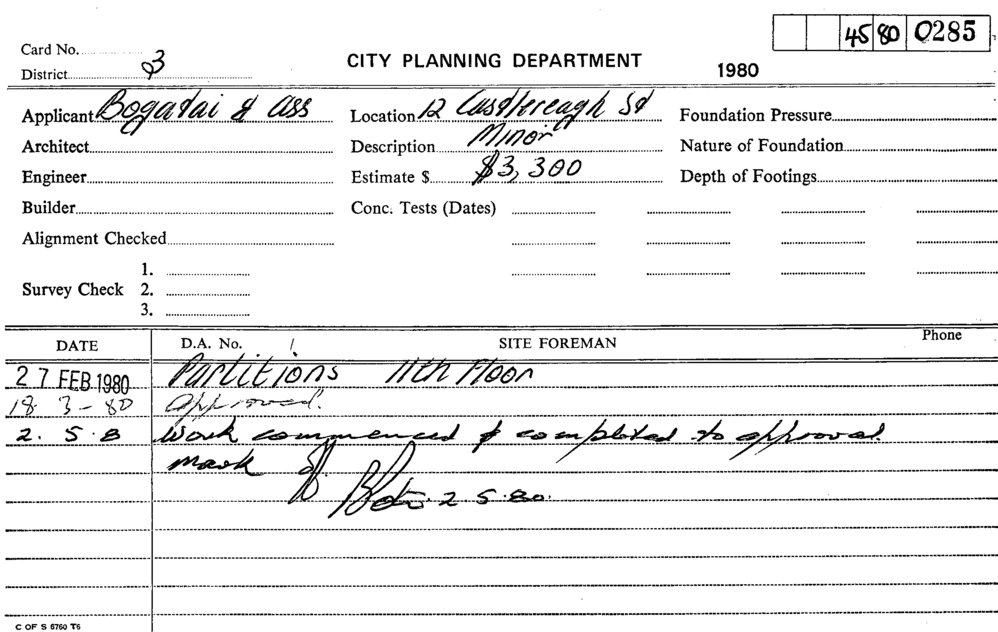 45 80 0285
Card No.
District 3
CITY PLANNING DEPARTMENT
1980
Applicant Bogadai & Ass
Location 12 Castlereagh St
Foundation Pressure
Architect
Description Minor
Nature of Foundation
Engineer
Estimate $ $3,300
Depth of Footings
Builder
Conc. Tests (Dates)
Alignment Checked
Survey Check
1.
2.
3.
DATE
D.A. No. /
SITE FOREMAN
Phone
27 FEB 1980 Partitions 11th Floor
18 3-80 Approved.
2.5.8 Work commenced & completed to approval.
mark
2.5.80.
C OF S 6760 T6